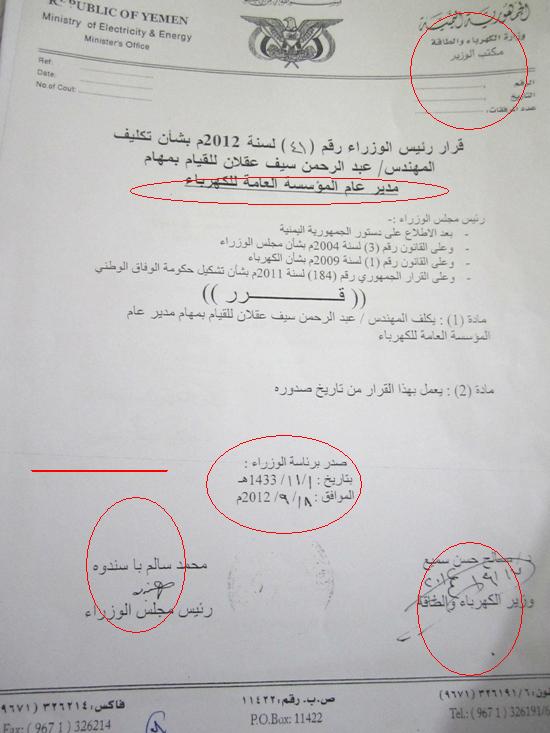 REPUBLIC OF YEMEN
Ministry of Electricity & Energy
Minister's Office
Ref:
Date:
No.of Cout:
الجمهورية اليمنية
وزارة الكهرباء والطاقة
مكتب الوزير
الرقم
التاريخ
عدد المرفقات:
قرار رئيس الوزراء رقم (٤١) لسنة 2012م بشأن تكليف
المهندس/ عبد الرحمن سيف عقلان للقيام بمهام
مدير عام المؤسسة العامة للكهرباء
رئيس مجلس الوزراء :-
- بعد الاطلاع على دستور الجمهورية اليمنية
- وعلى القانون رقم (3) لسنة 2004م بشأن مجلس الوزراء
- وعلى القانون رقم (1) لسنة 2009م بشأن الكهرباء
- وعلى القرار الجمهوري رقم (184) لسنة 2011م بشأن تشكيل حكومة الوفاق الوطني
(( قـــــــرر ))
مادة (1) : يكلف المهندس / عبد الرحمن سيف عقلان للقيام بمهام مدير عام
المؤسسة العامة للكهرباء
مادة (2) : يعمل بهذا القرار من تاريخ صدوره
صدر برئاسة الوزراء :
بتاريخ : ١/ ١١/ 1433هـ
الموافق : ١٨/ ٩/ 2012م
صالح حسن سميع
وزير الكهرباء والطاقة
محمد سالم با سندوه
رئيس مجلس الوزراء
فاكس: ٣٢٦٢١٤ (٩٦٧١)
Fax: ( 967 1 ) 326214
ص.ب. رقم: ١١٤٢٢
P.O.Box: 11422
٣٢٦١٩١/٦ (٩٦٧١)
Tel.: ( 967 1 ) 326191/6